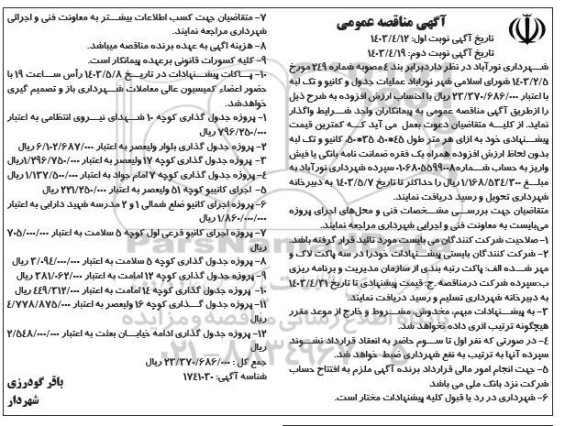 آگهی مناقصه عمومی
تاریخ آگهی نوبت اول: ۱۴۰۳/۴/۱۲
تاریخ آگهی نوبت دوم: ۱۴۰۳/۴/۱۹
شهرداری نورآباد در نظر دارد برابر بند ۴ مصوبه شماره ۲۴۹ مورخ
۱۴۰۳/۲/۵ شورای اسلامی شهر نورآباد عملیات جدول و کانیو و تک لبه
با اعتبار ۲۳/۳۷۰/۶۸۶/۰۰۰ ریال با احتساب ارزش افزوده به شرح ذیل
را از طریق آگهی مناقصه عمومی به پیمانکاران واجد شرایط واگذار
نماید. از کلیه متقاضیان دعوت بعمل می آید که کمترین قیمت
پیشنهادی خود به ازای هر متر طول ۴۵*۵۰، ۳۵*۵۰ کانیو و تک لبه
بدون لحاظ ارزش افزوده همراه یک فقره ضمانت نامه بانکی یا فیش
واریز به حساب شماره ۰۱۰۶۸۰۵۵۹۹۰۰۸ سپرده شهرداری نورآباد به
مبلغ ۱/۱۶۸/۵۳۴/۳۰۰ ریال را حداکثر تا تاریخ ۱۴۰۳/۵/۷ به دبیرخانه
شهرداری تحویل و رسید دریافت نمایند.
متقاضیان جهت بررسی مشخصات فنی و محل‌های اجرای پروژه
می‌بایست به معاونت فنی و اجرایی شهرداری مراجعه نمایند.
۱- صلاحیت شرکت کنندگان می بایست مورد تائید قرار گرفته باشد.
۲- شرکت کنندگان بایستی پیشنهادات خود را در سه پاکت لاک و
مهر شده الف: پاکت رتبه بندی از سازمان مدیریت و برنامه ریزی
ب:سپرده شرکت در مناقصه. ج: قیمت پیشنهادی تا تاریخ ۱۴۰۳/۴/۳۱
به دبیرخانه شهرداری تسلیم و رسید دریافت نمایند.
۳- به پیشنهادات مبهم، مخدوش، مشروط و خارج از موعد مقرر
هیچگونه ترتیب اثری داده نخواهد شد.
۴- در صورتی که نفر اول تا سوم حاضر به انعقاد قرارداد نشوند
سپرده آنها به ترتیب به نفع شهرداری ضبط خواهد شد.
۵- جهت انجام امور مالی قرارداد برنده آگهی ملزم به افتتاح حساب
شرکت نزد بانک ملی می باشد.
۶- شهرداری در رد یا قبول کلیه پیشنهادات مختار است.
۷- متقاضیان جهت کسب اطلاعات بیشتر به معاونت فنی و اجرائی
شهرداری مراجعه نمایند.
۸- هزینه آگهی به عهده برنده مناقصه میباشد.
۹- کلیه کسورات قانونی برعهده پیمانکار است.
۱۰- پاکات پیشنهادات در تاریخ ۱۴۰۳/۵/۸ رأس ساعت ۱۹ با
حضور اعضاء کمیسیون عالی معاملات شهرداری باز و تصمیم گیری
خواهد شد.
۱- پروژه جدول گذاری کوچه ۱۰ شهدای نیروی انتظامی به اعتبار
۷۹۶/۲۵۰/۰۰۰ ریال
۲- پروژه جدول گذاری بلوار ولیعصر به اعتبار ۶/۱۰۲/۶۸۷/۰۰۰ ریال
۳- پروژه جدول گذاری کوچه ۱۷ ولیعصر به اعتبار ۱/۲۹۶/۷۵۰/۰۰۰ ریال
۴- پروژه جدول گذاری کوچه ۷ امام جواد به اعتبار ۱/۱۳۷/۵۰۰/۰۰۰ ریال
۵- اجرای کانیو کوچه ۵۱ ولیعصر به اعتبار ۲۲۱/۲۵۰/۰۰۰ ریال
۶- پروژه اجرای کانیو ضلع شمالی ۱ و ۲ مدرسه شهید دارایی به اعتبار
۱/۸۶۰/۰۰۰/۰۰۰ ریال
۷- پروژه اجرای کانیو فرعی اول کوچه ۵ سلامت به اعتبار ۷۰۵/۰۰۰/۰۰۰
ریال
۸- پروژه جدول گذاری کوچه ۵ سلامت به اعتبار ۳/۰۹۴/۰۰۰/۰۰۰ ریال
۹- پروژه جدول گذاری کوچه ۱۲ امامت به اعتبار ۳۸۱/۰۶۲/۰۰۰ ریال
۱۰- پروژه جدول گذاری کوچه ۱۴ امامت به اعتبار ۴۴۹/۳۱۲/۰۰۰ ریال
۱۱- پروژه جدول گذاری کوچه ۱۶ ولیعصر به اعتبار ۴/۷۷۸/۸۷۵/۰۰۰
ریال
۱۲- پروژه جدول گذاری ادامه خیابان بعثت به اعتبار ۲/۵۴۸/۰۰۰/۰۰۰
ریال
جمع کل: ۲۳/۳۷۰/۶۸۶/۰۰۰ ریال
شناسه آگهی: ۱۷۴۱۰۳۰
باقر گودرزی
شهردار